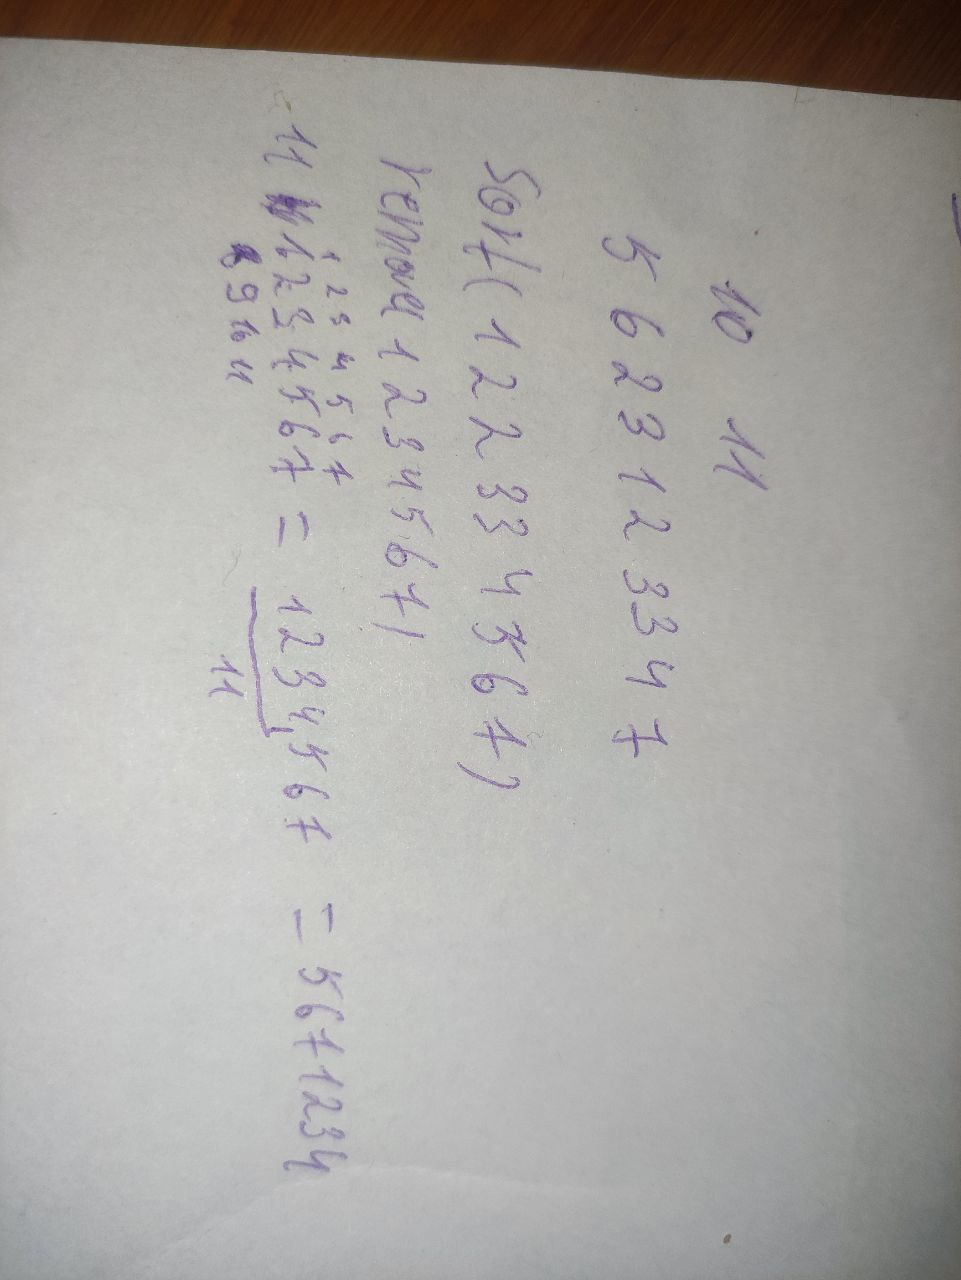 10 11
5 6 2 3 1 2 3 3 4 7
Sort(1 2 2 3 3 4 5 6 7)
remove 1 2 3 4 5 6 7)
1 2 3 4 5 6 7
11 1 2 3 4 5 6 7 = 1 2 3 4, 5 6 7 = 5 6 7 1 2 3 4
8 9 10 11
11